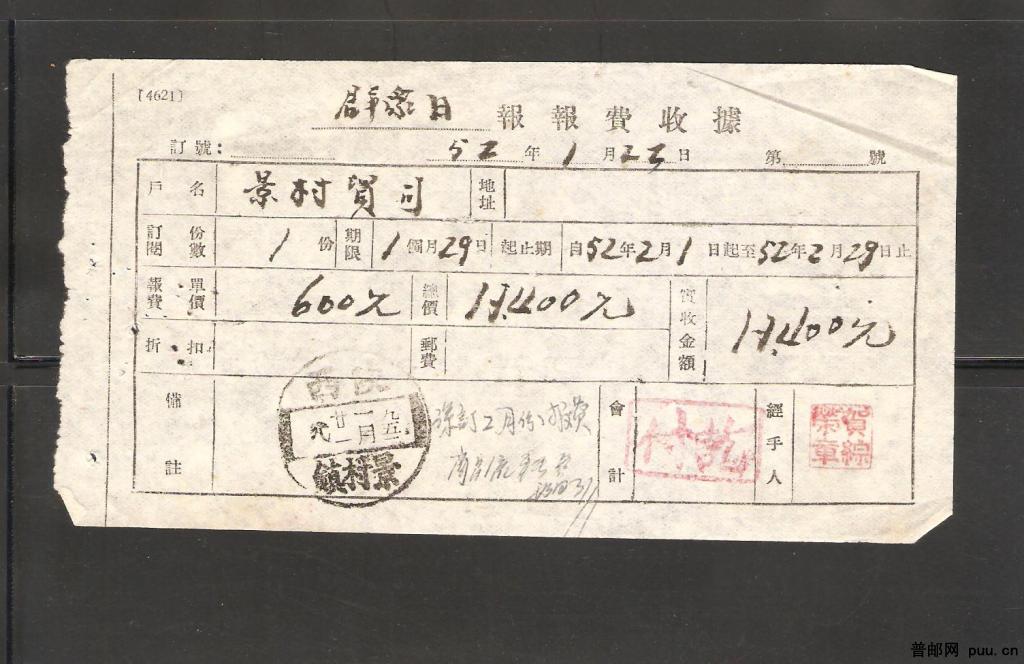 [4621]
群众日 報報費收據
訂號： 52年1月23日 第 號
戶名 景村貿司 地址
訂閱份數 1份 期限 1個月29日 起止期 自52年2月1日起至52年2月29日止
報費單價 600元 總價 17,400元 實收金額 17,400元
折扣 郵費
備註 會計 付訖 經手人 賀綜榮章
陕西
景村鎮
訂2月份报费
普邮网 puu.cn